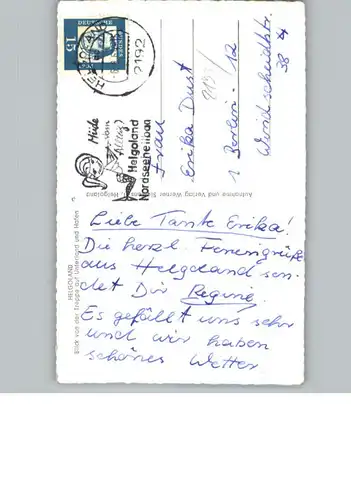 15
HELGOLAND
2192
Müde
vom
Alltag?
Helgoland
Nordseeheilbad
Frau
Erika Dust
1 Berlin - 12
38
Aufnahme und Verlag Werner Helgoland
HELGOLAND
Blick von der Treppe auf Unterland und Hafen
Liebe Tante Erika!
Die herzl. Feriengrüße
aus Helgoland sen-
det Dir Regine.
Es gefällt uns sehr
und wir haben
schönes Wetter